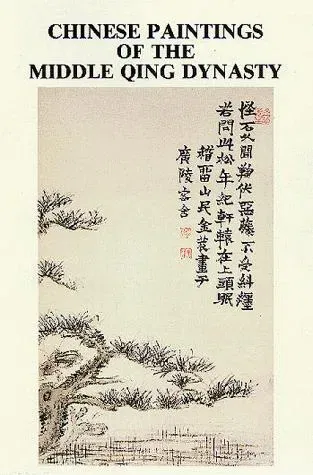 CHINESE PAINTINGS
OF THE
MIDDLE QING DYNASTY
怪石伏藤不受糾纏
若問此松年紀軒轅在上頭眠
稽留山民金農畫于
廣陵客舍